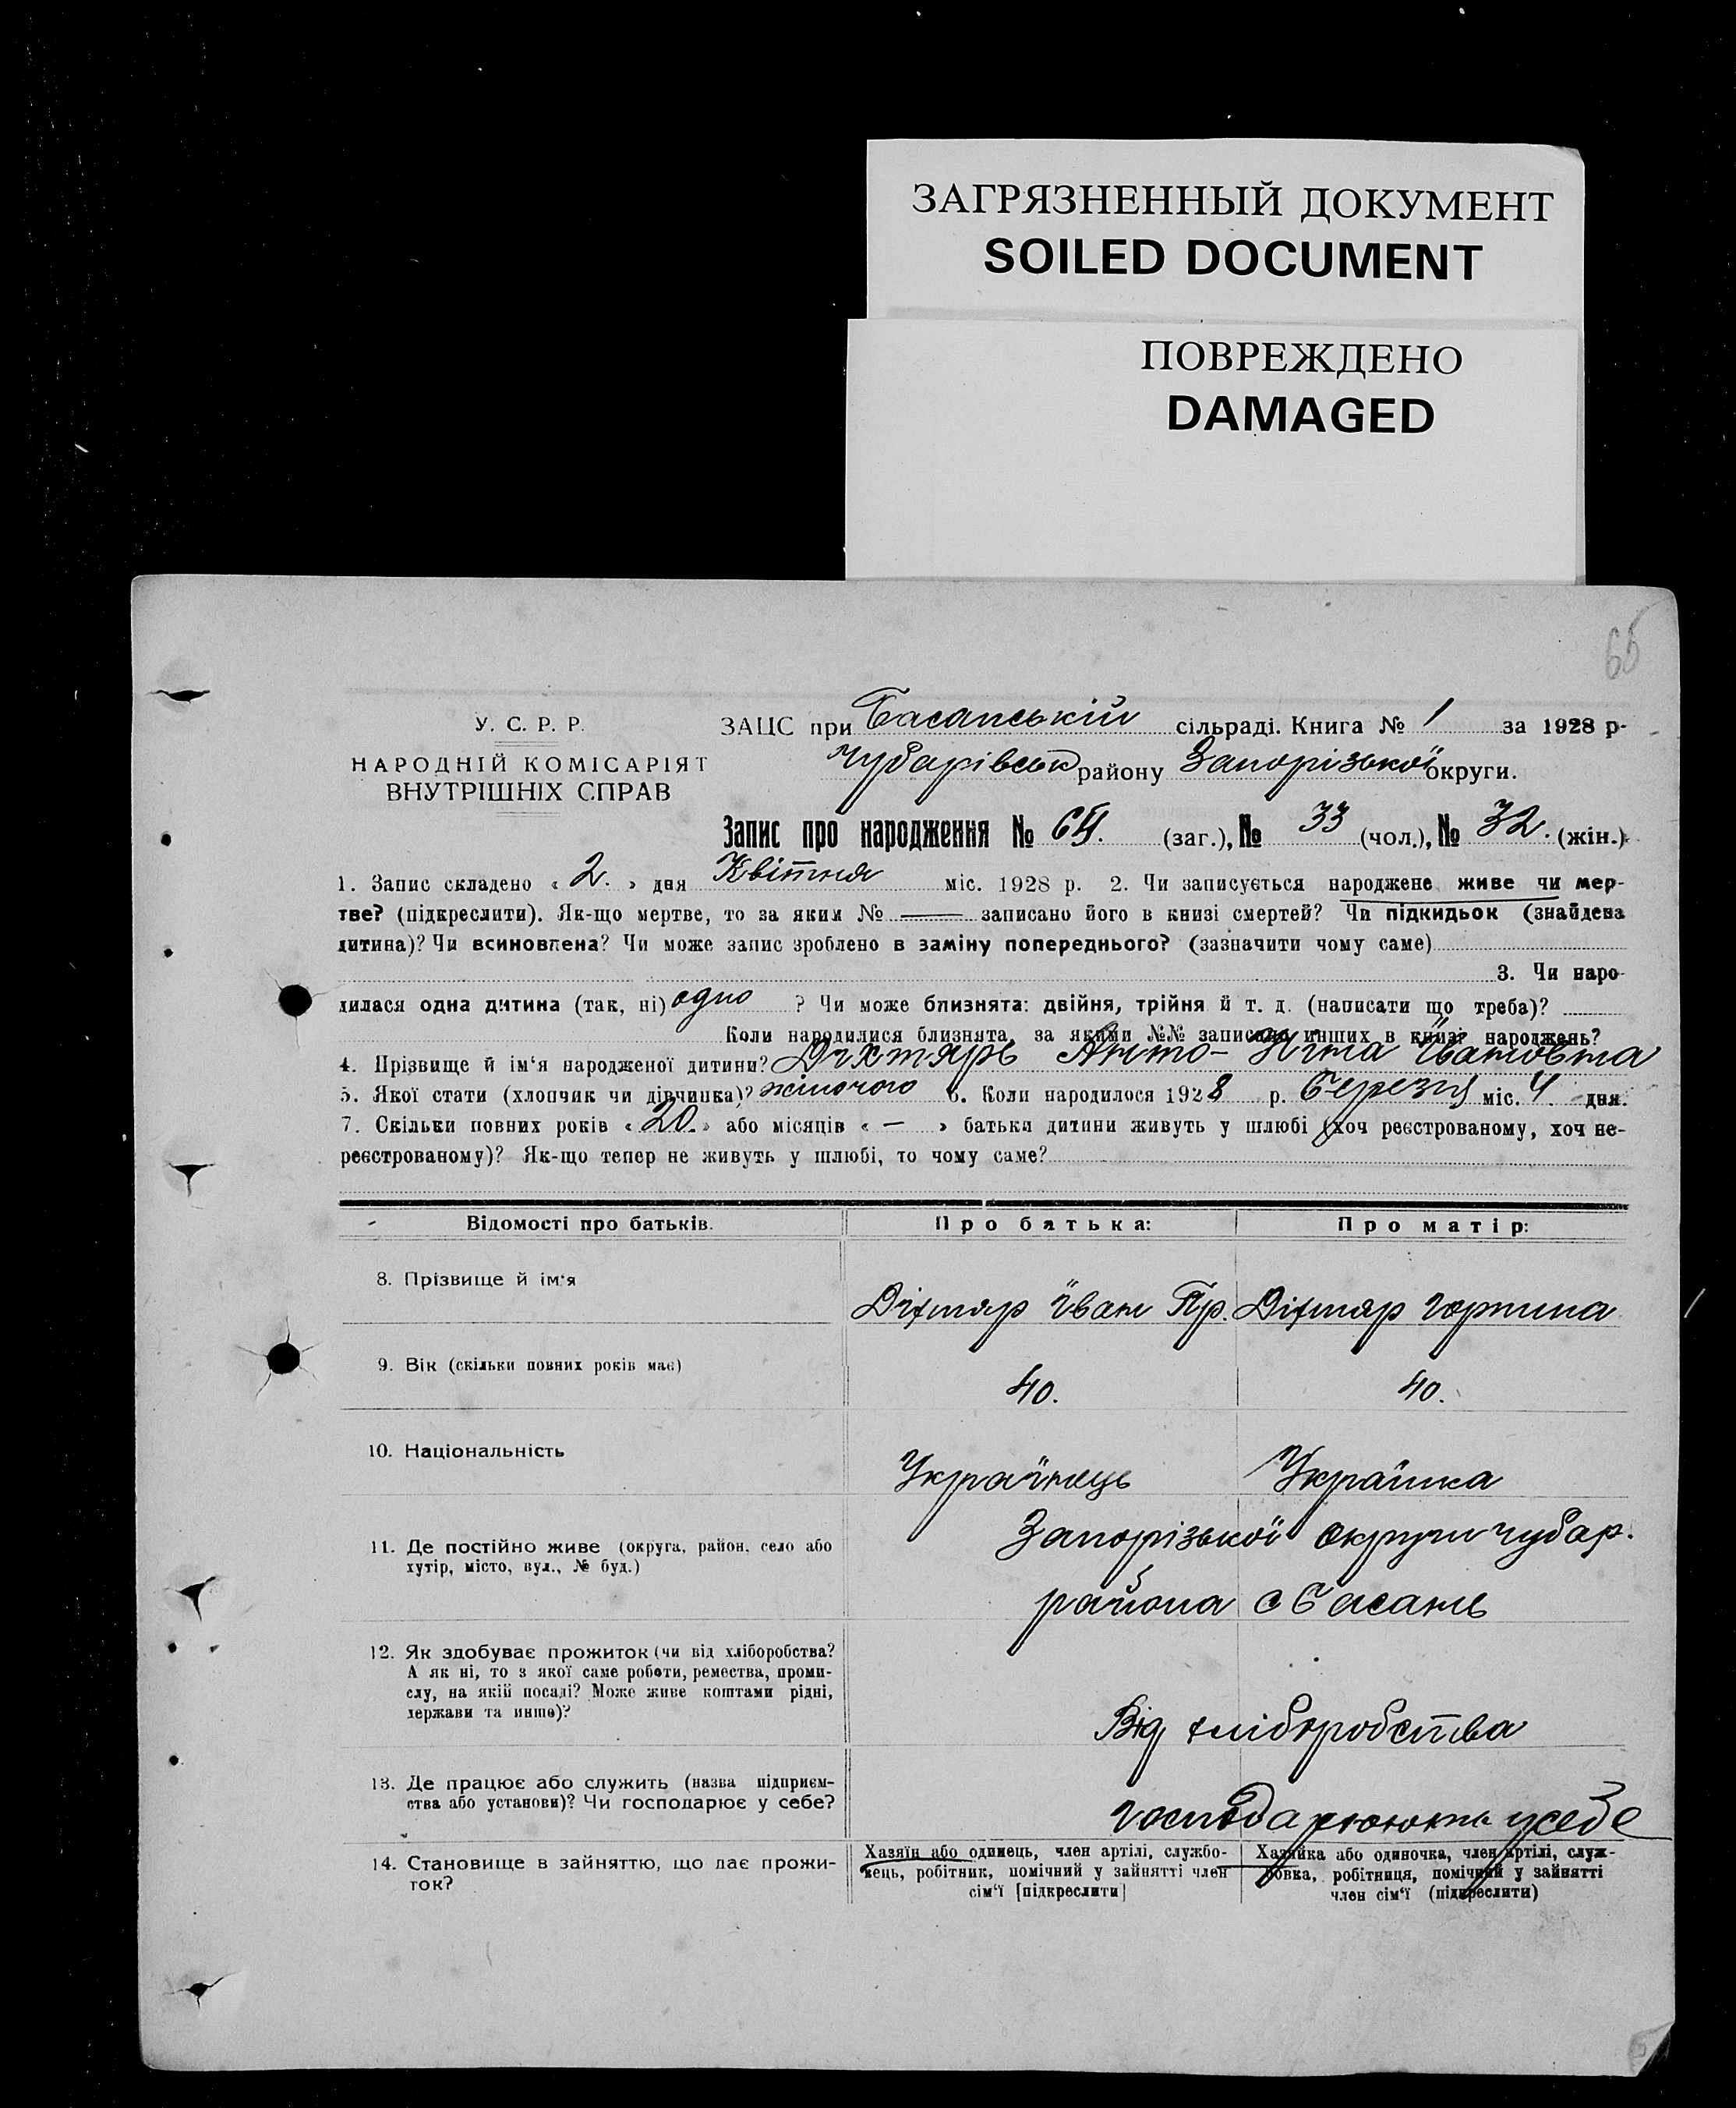 ЗАГРЯЗНЕННЫЙ ДОКУМЕНТ
SOILED DOCUMENT
ПОВРЕЖДЕНО
DAMAGED
65
У. С. Р. Р.
НАРОДНІЙ КОМІСАРІЯТ
ВНУТРІШНІХ СПРАВ
ЗАЦС при Басанській сільраді. Книга № 1 за 1928 р-
Чубарівськ району Запорізької округи.
Запис про народження № 64. (заг.), № 33 (чол.), № 32. (жін.)
1. Запис складено « 2. » дня Квітня міс. 1928 р. 2. Чи записується народжене живе чи мер-
тве? (підкреслити). Як-що мертве, то за яким № — записано його в книзі смертей? Чи підкидьок (знайдена
дитина)? Чи всиновлена? Чи може запис зроблено в заміну попереднього? (зазначити чому саме)
3. Чи наро-
дилася одна дитина (так, ні) одно ? Чи може близнята: двійня, трійня й т. д. (написати що треба)?
Коли народилися близнята, за якими №№ записано инших в книзі народжень?
4. Прізвище й ім‘я народженої дитини? Діхтярь Анто-Ніна Івановна
5. Якої стати (хлопчик чи дівчинка)? жіночого 6. Коли народилося 1928 р. Березня міс. 4 дня.
7. Скільки повних років « 20. » або місяців « — » батьки дитини живуть у шлюбі (хоч реєстрованому, хоч не-
реєстрованому)? Як-що тепер не живуть у шлюбі, то чому саме?
Відомості про батьків. Про батька: Про матір:
8. Прізвище й ім‘я Діхтяр Іван Гр. Діхтяр Горпина
9. Вік (скільки повних років має) 40. 40.
10. Національність Українець Українка
11. Де постійно живе (округа, район, село або
хутір, місто, вул., № буд.) Запорізької округи чубар.
района с Басань
12. Як здобуває прожиток (чи від хліборобства?
А як ні, то з якої саме роботи, ремества, проми-
слу, на якій посаді? Може живе коштами рідні,
держави та инше)? Від хліборобства
13. Де працює або служить (назва підприєм-
ства або установи)? Чи господарює у себе? господарюють у себе
14. Становище в зайняттю, що дає прожи-
ток?
Хазяїн або одинець, член артілі, службо-
вець, робітник, помічний у зайнятті член
сім‘ї [підкреслити]
Хазяйка або одиночка, член артілі, служ-
бовка, робітниця, помічний у зайнятті
член сім‘ї (підкреслити)